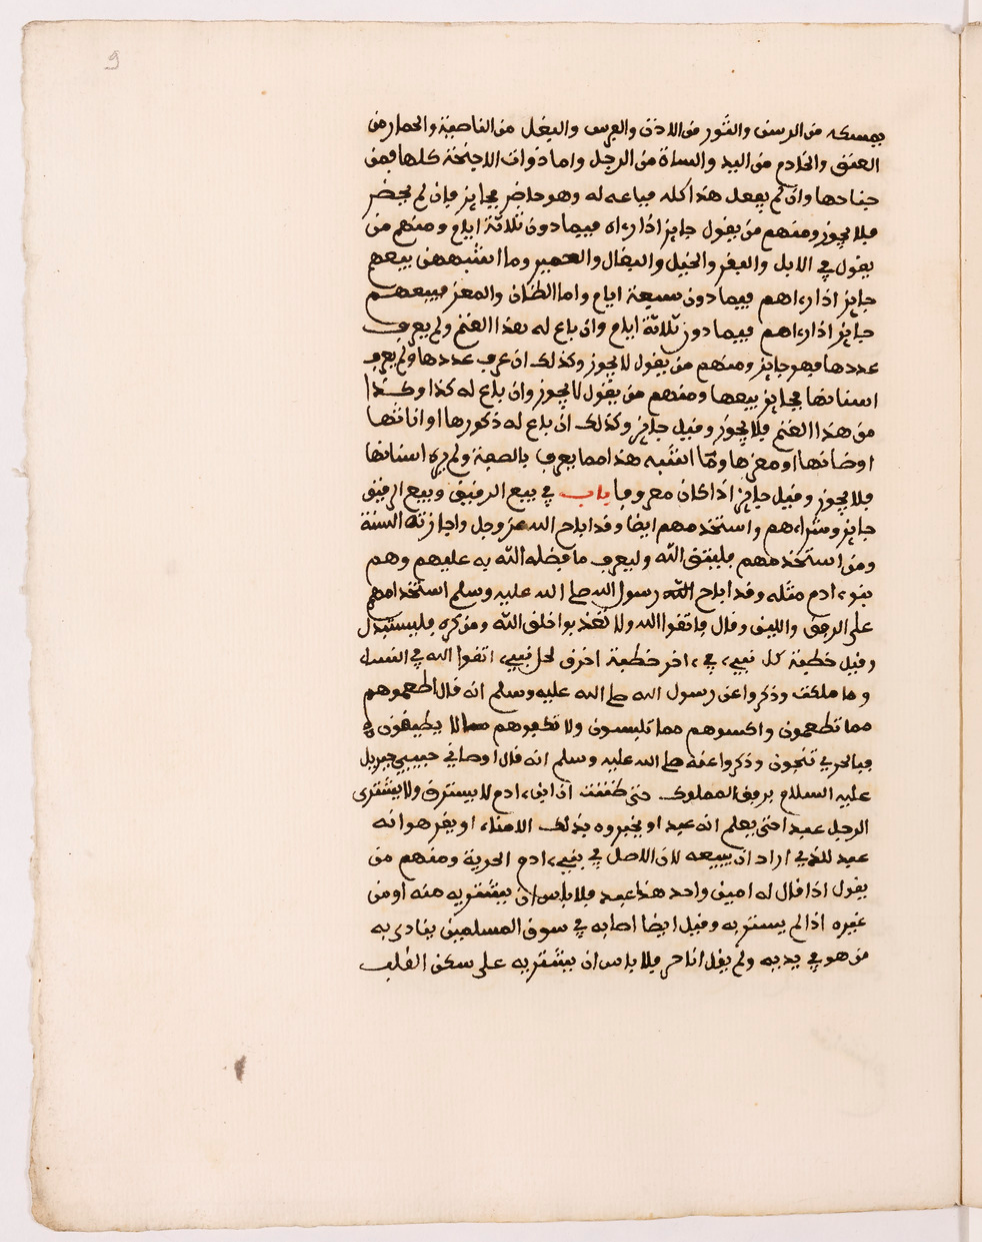 9
يمسكه من الرسن والثور من الاذن والفرس والبغل من الناصية والحمار من
العنق والخادم من اليد والشاة من الرجل واما ذوات الاجنحة كلها فمن
جناحها وان لم يفعل هذا كله فباعه له وهو حاضر فجايز فان لم يحضر
فلا يجوز ومنهم من يقول جايز اذا رءاه فيما دون ثلاثة ايام ومنهم من
يقول في الابل والبقر والخيل والبغال والحمير وما اشبههن بيعهم
جايز اذا رءاهم فيما دون سبعة ايام واما الضان والمعز فبيعهم
جايز اذا رءاهم فيما دون ثلاثة ايام وان باع له هذا الغنم ولم يعرف
عددها فهو جايز ومنهم من يقول لا يجوز وكذلك ان عرف عددها ولم يعرف
اسنانها فجايز بيعها ومنهم من يقول لا يجوز وان باع له كذا وكذا
من هذا الغنم فلا يجوز وقيل جايز وكذلك ان باع له ذكورها او اناثها
او ضانها او معزها وما اشبه هذا مما يعرف بالصفة ولم ير اسنانها
فلا يجوز وقيل جايز اذا كان معروفا باب في بيع الرقيق وبيع الرقيق
جايز وشراءهم واستخدمهم ايضا وقد اباح الله عز وجل واجازته السنة
ومن استخدمهم فليتق الله وليعرف ما فضله الله به عليهم وهم
بنوءادم مثله وقد اباح الله رسول الله صلى الله عليه وسلم استخدامهم
على الرفق واللين وقال فاتقوا الله ولا تعذبوا خلق الله ومن كره فليستبدل
وقيل خطبة كل نبيء في ءاخر خطبة اخرق لكل نبيء اتقوا الله في النساء
وما ملكت وذكروا عن رسول الله صلى الله عليه وسلم انه قال اطعموهم
مما تطعمون واكسوهم مما تلبسون ولا تكلفوهم ما لا يطيقون في
فبالحري تنجون وذكروا عنه صلى الله عليه وسلم انه قال اوصاني حبيبي جبريل
عليه السلام برفق المملوك حتى ظننت ان ابنءادم لا يسترق ولا يشترى
الرجل عبدا حتى يعلم انه عبد او يخبروه بذلك الامناء او يقر هو انه
عبد للذي اراد ان يبيعه لان الاصل في بنيءادم الحرية ومنهم من
يقول اذا قال له امين واحد هذا عبد فلا باس ان يشتريه منه او من
غيره اذا لم يستربه وقيل ايضا اصابه في سوق المسلمين ينادى به
من هو في يديه ولم يقل انا حر فلا باس ان يشتريه على سكن القلب